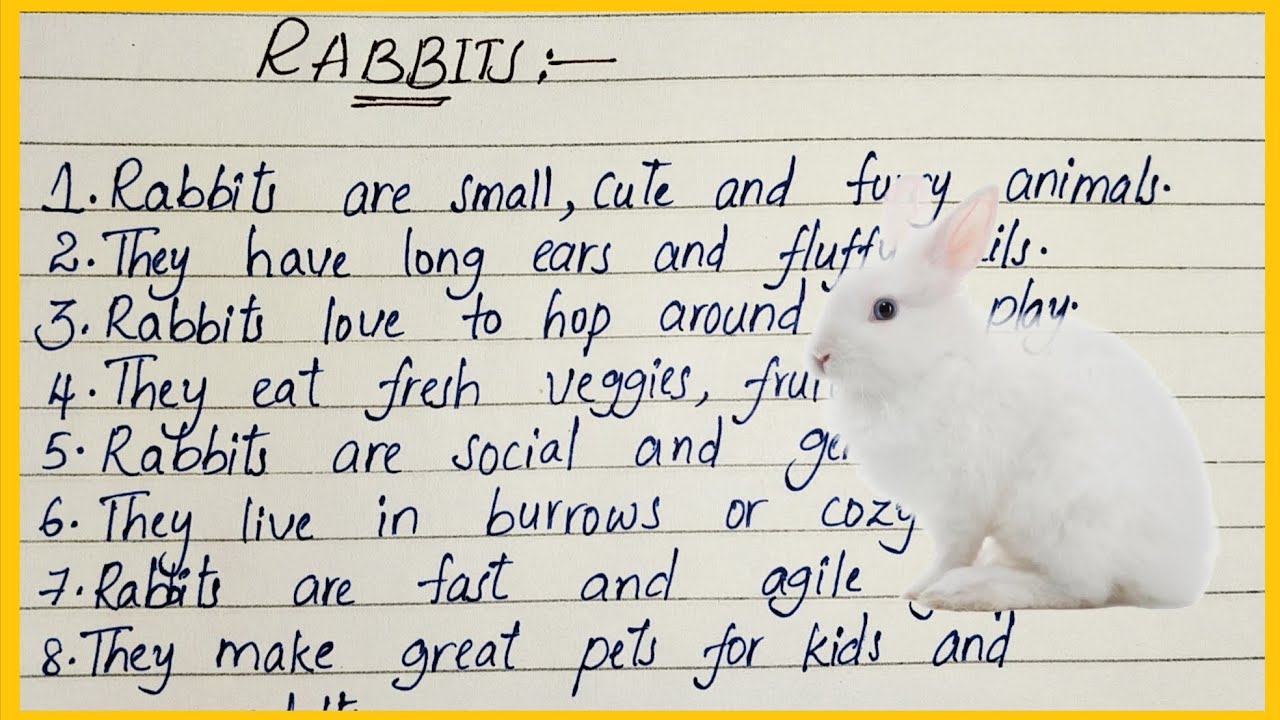 RABBITS:—
1. Rabbits are small, cute and furry animals.
2. They have long ears and fluffy
3. Rabbits love to hop around play.
4. They eat fresh veggies,
5. Rabbits are social and
6. They live in burrows or cozy
7. Rabbits are fast and agile
8. They make great pets for kids and